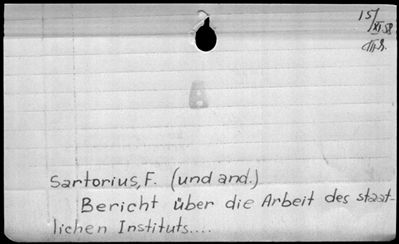 15/XI.58
Sartorius, F. (und and.)
Bericht über die Arbeit des staat-
lichen Instituts....